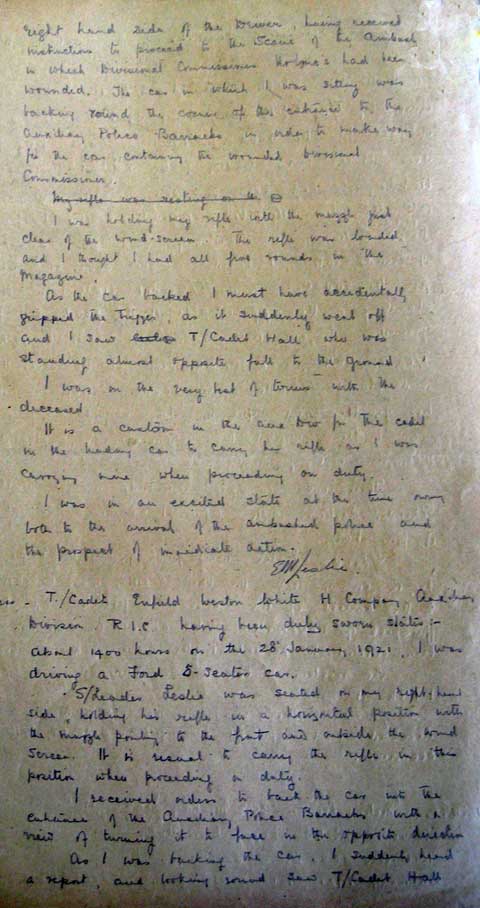 right hand side of the Driver, having received
instructions to proceed to the Scene of the Ambush
in which Divisional Commissioner Holmes had been
wounded. The car in which I was sitting was
backing round the corner of the entrance to the
Auxiliary Police Barracks in order to make way
for the car containing the wounded Divisional
Commissioner.
My rifle was resting on the
I was holding my rifle with the muzzle just
clear of the wind-screen. The rifle was loaded
and I thought I had all five rounds in the
Magazine.
As the car backed I must have accidentally
gripped the Trigger, as it suddenly went off
and I saw T/Cadet Hall who was
standing almost opposite fall to the ground.
I was on the very best of terms with the
deceased.
It is a custom in the Aux Div for the cadet
in the leading car to carry his rifle as I was
carrying mine when proceeding on duty.
I was in an excited state at the time owing
both to the arrival of the ambushed police and
the prospect of immediate action.
EM Leslie.
T./Cadet Enfield Weston White H Company Auxiliary
Division R.I.C. having been duly sworn states:-
About 1400 hours on the 28 January 1921, I was
driving a Ford 5-Seater car.
S/Leader Leslie was seated on my right-hand
side, holding his rifle in a horizontal position with
the muzzle pointing to the front and outside the wind
Screen. It is usual to carry the rifle in this
position when proceeding on duty.
I received orders to back the car into the
entrance of the Auxiliary Police Barracks with a
view of turning it to face in the opposite direction
As I was backing the car, I suddenly heard
a report, and looking round saw T/Cadet Hall